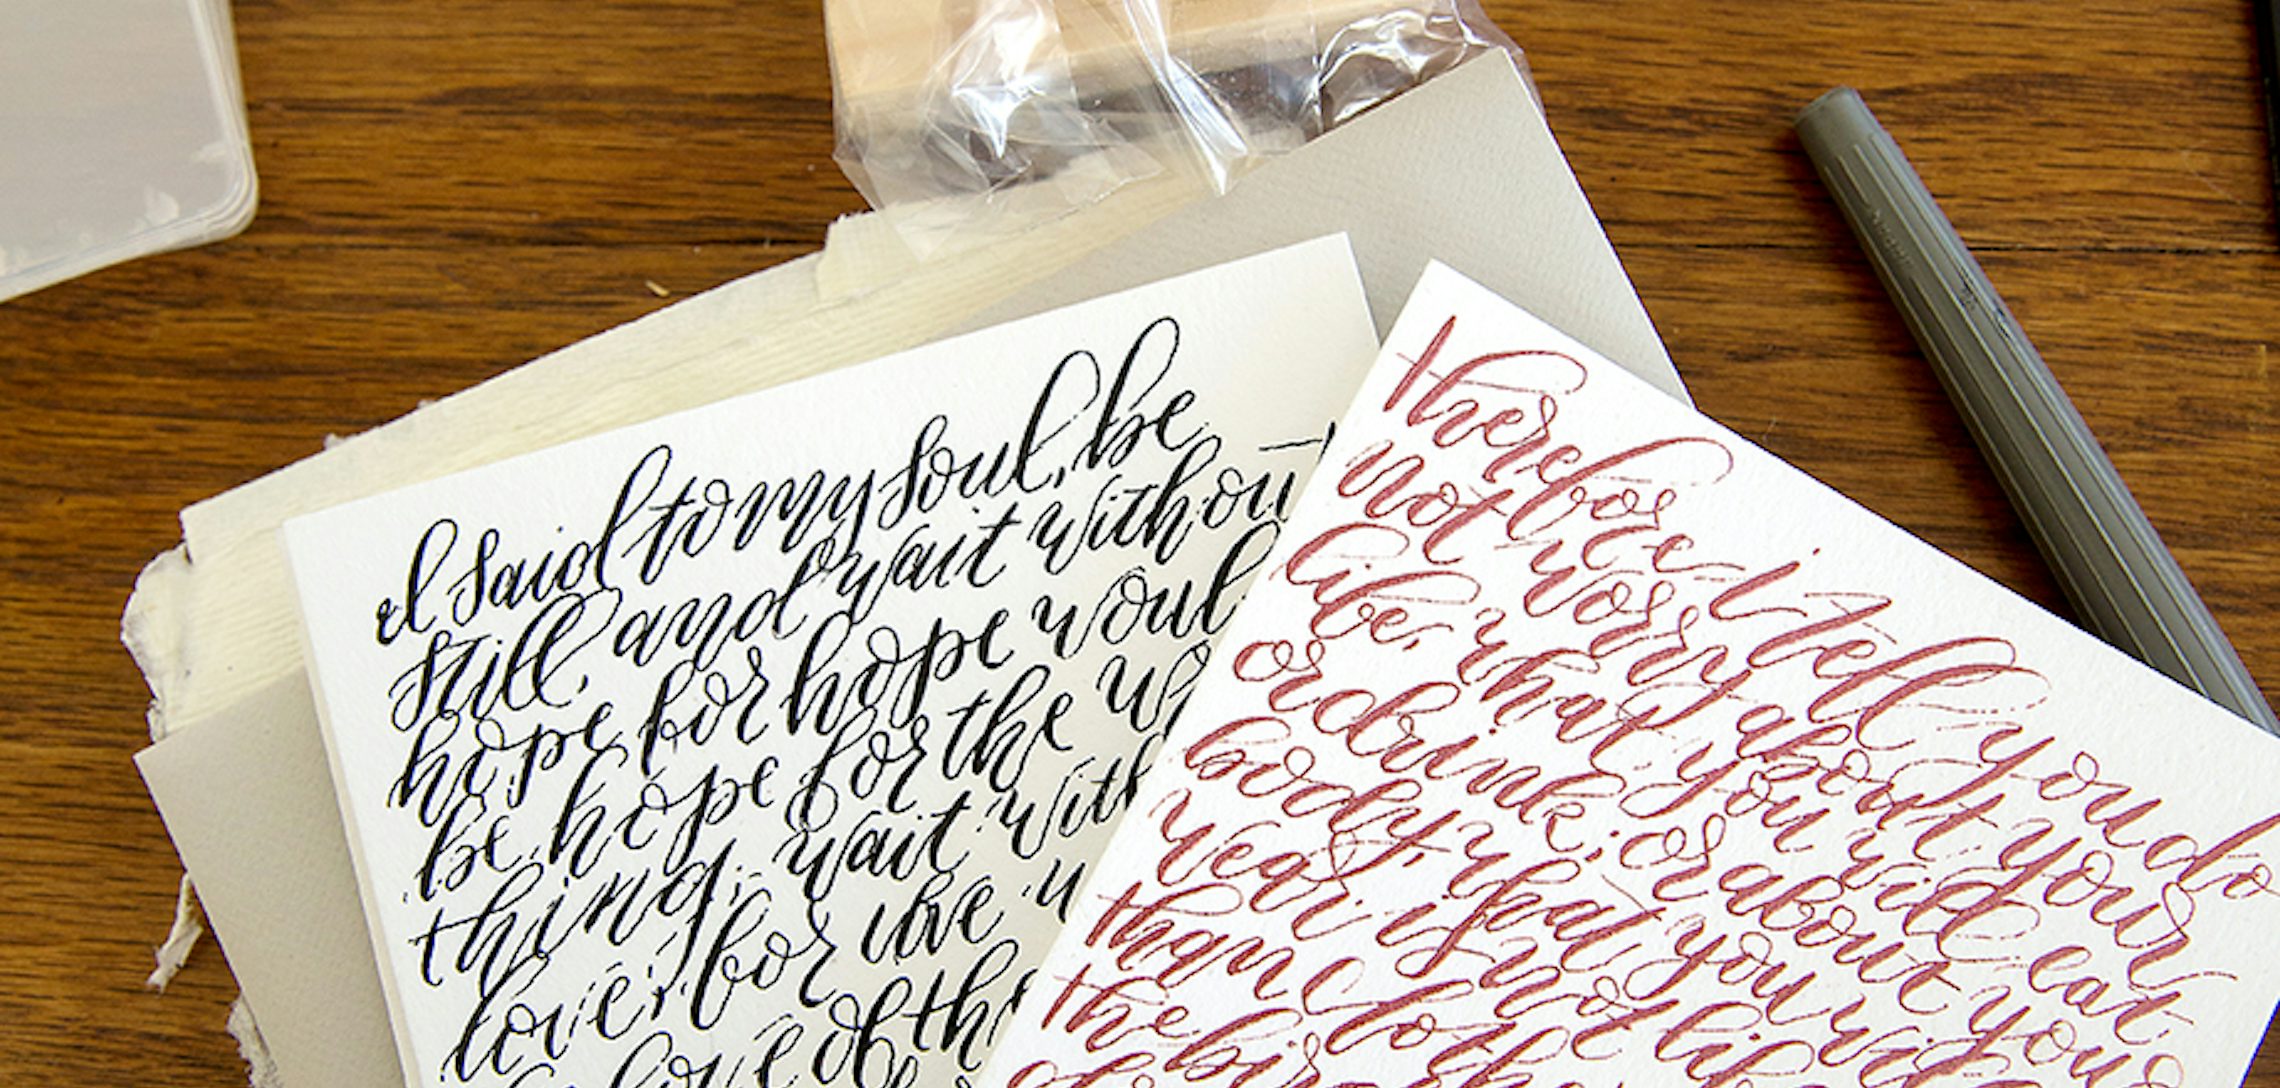 I said to my soul, be
still, and wait without
hope for hope would
be hope for the
thing; wait with
love, for love
love of the
therefore I tell you do
not worry about your
life, what you will eat
or drink; or about your
body, what you will
wear. is not life
than
the birds